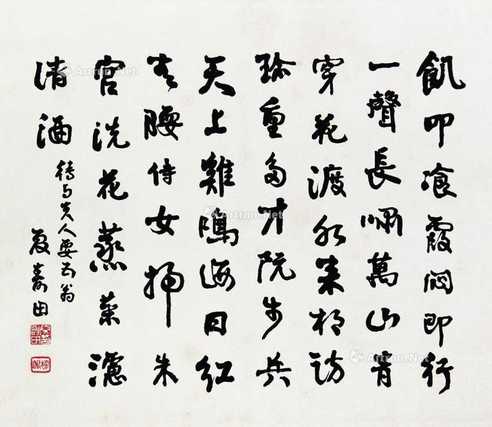 飢即飡霞悶即行
一聲長嘯萬山青
穿花渡水來相訪
珍重多才阮步兵
天上雞鳴海日紅
青腰侍女掃朱
宮洗花蒸葉濾
清酒
待与夫人要五翁
夏壽田